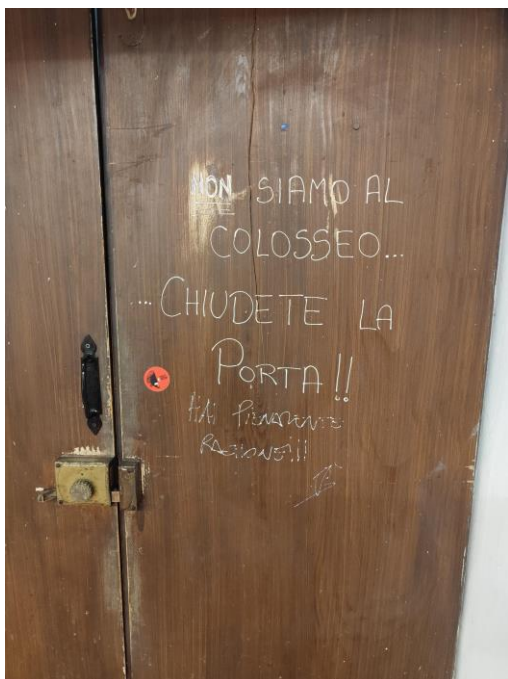 NON SIAMO AL
COLOSSEO...
...CHIUDETE LA
PORTA!!
HAI PIENAMENTE
RAGIONE!!!